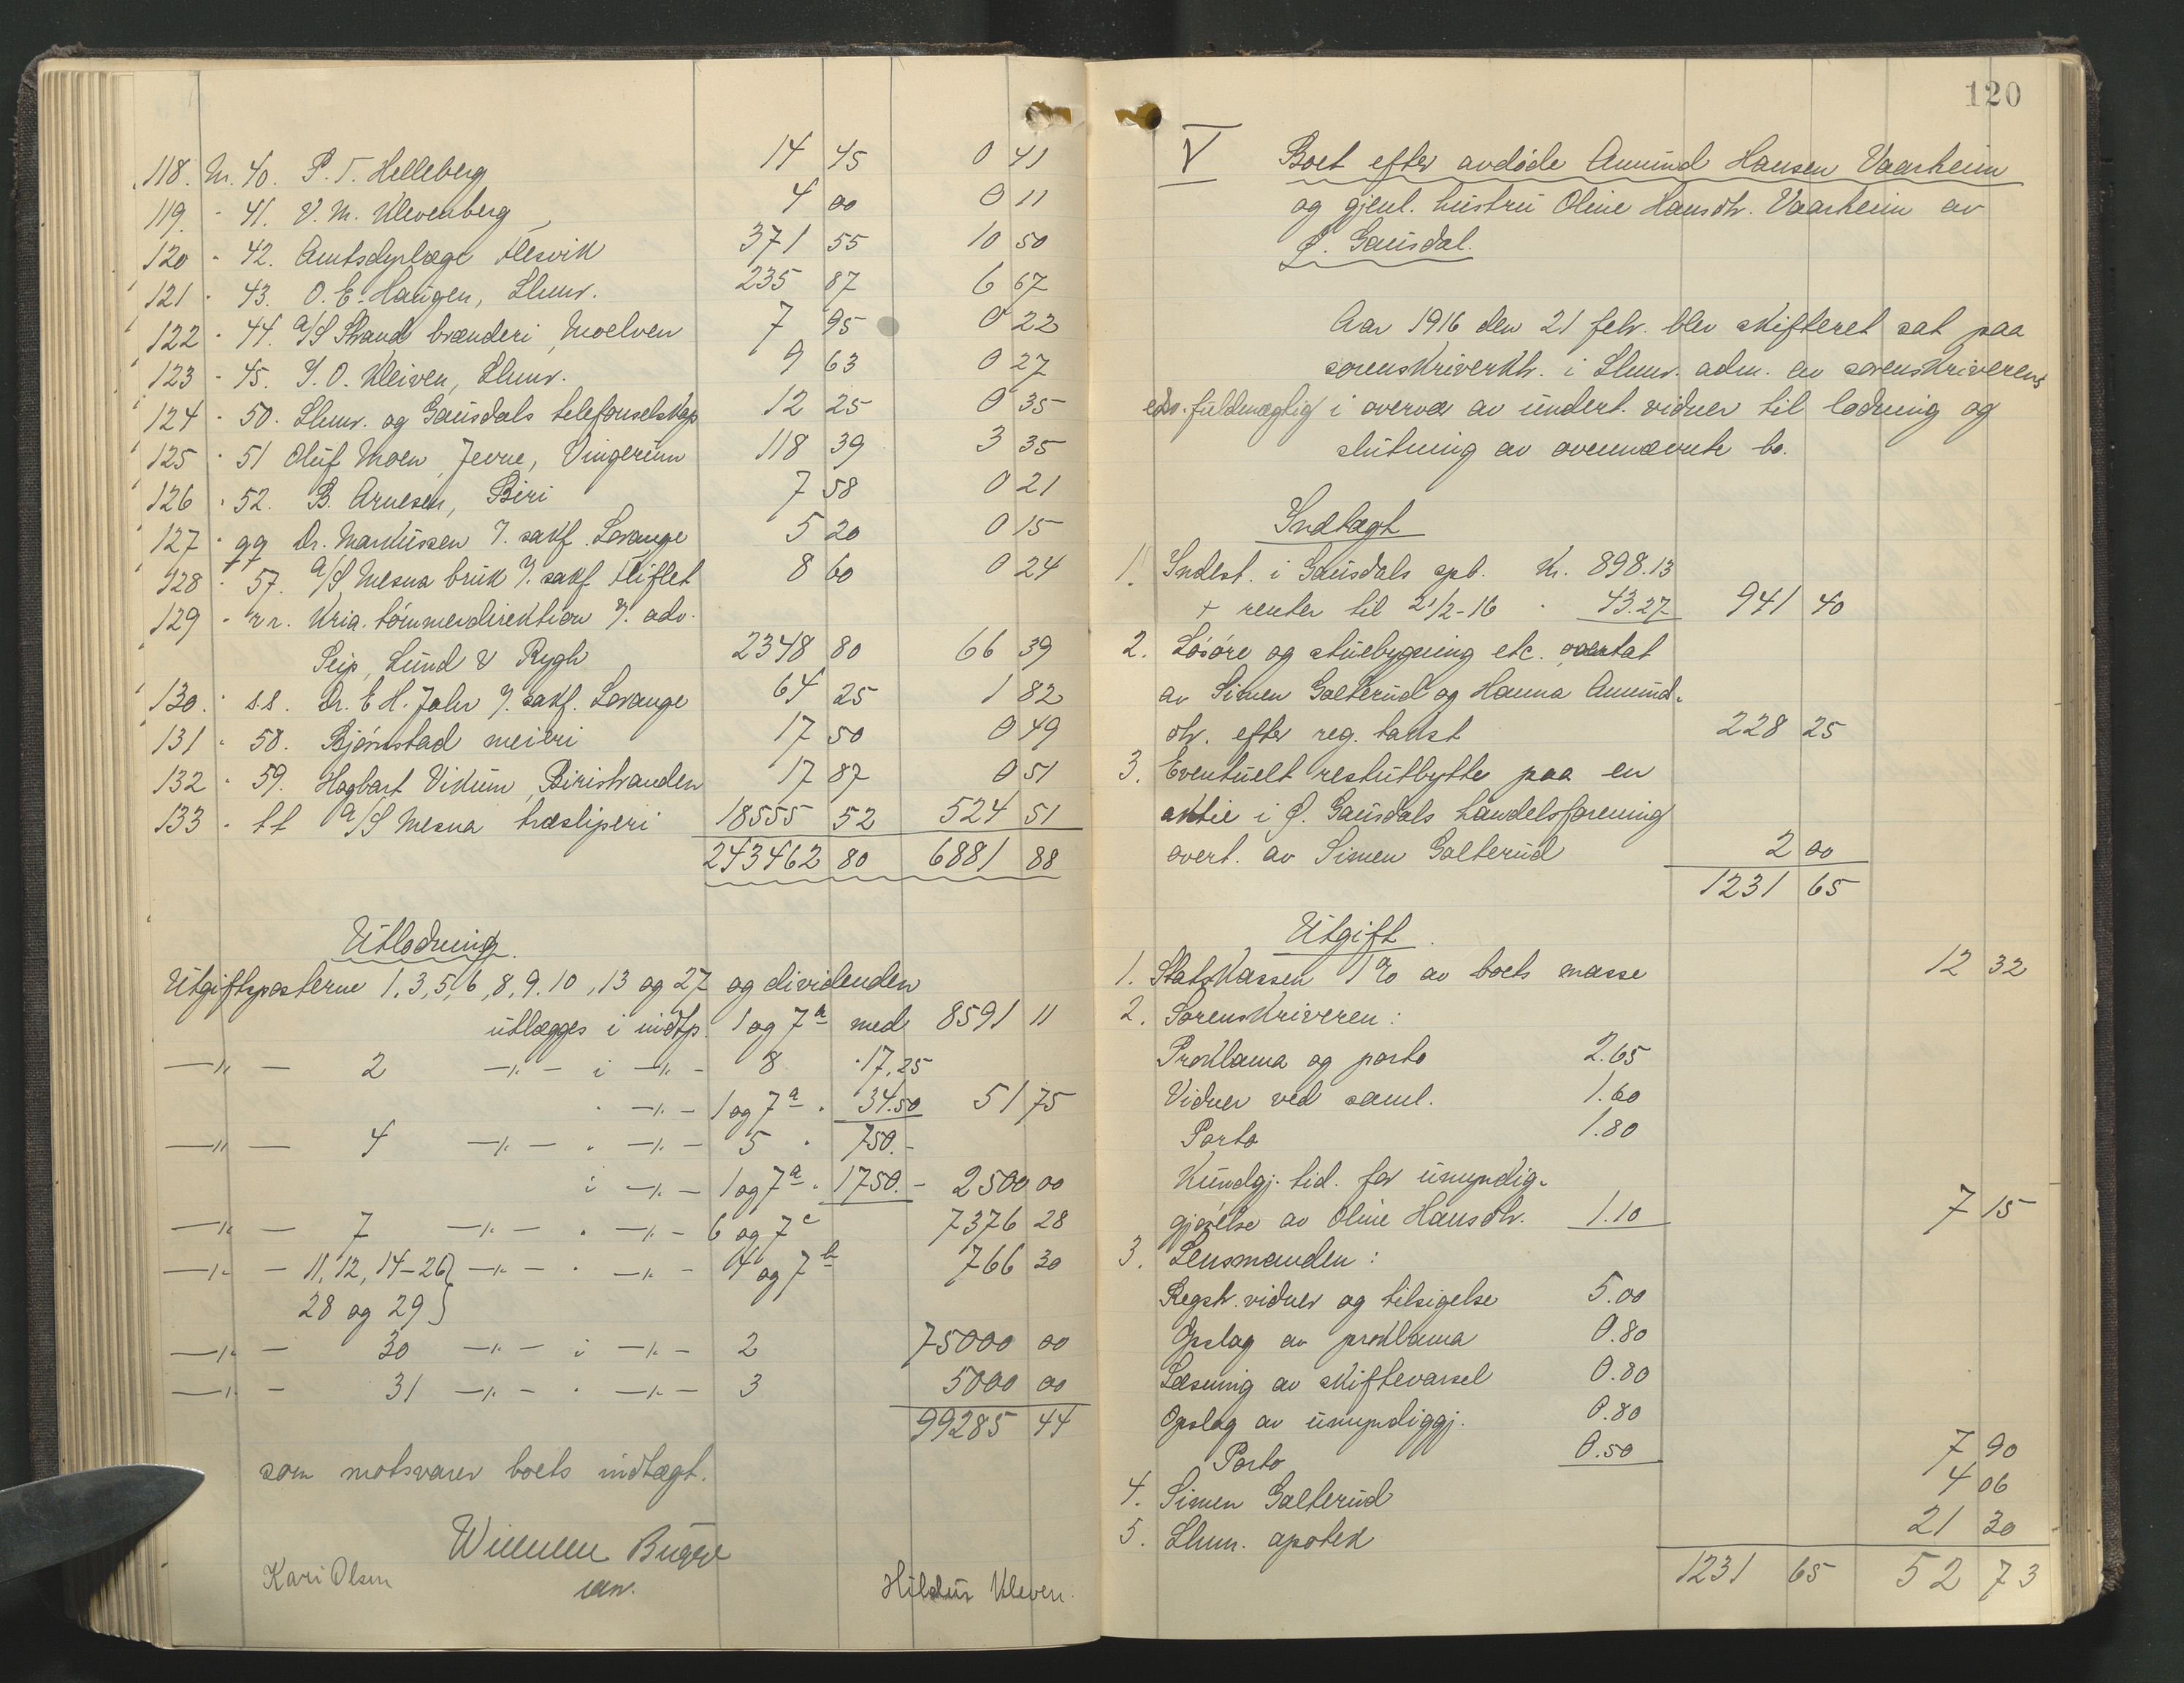 118. Nr. 40. P. T. Helleberg 14 45 0 41
119. " 41. V. M. Klevenberg 4 00 0 11
120 " 42. Amtsdyrlæge Flesvik 371 55 10 50
121 " 43. O. E. Haugen, Lhmr. 235 87 6 67
122 " 44. A/S Strand brænderi, Moelven 7 95 0 22
123 " 45. J. O. Kleiven, Lhmr. 9 63 0 27
124 " 50. Lhmr. og Gausdals telefonselskap 12 25 0 35
125 " 51 Oluf Moen, Jevne, Vingerum 118 39 3 35
126 " 52. B. Arnesen, Biri 7 58 0 21
127 " qq Dr. Markussen v. sakf. Lovange 5 20 0 15
128 " 57. A/S Mesna bruk v. sakf. Fliflet 8 60 0 24
129 " rr. Kria. tømmerdirektion v. adv.
Peip, Lund & Rygh 2348 80 66 39
130. " ss. Dr. E. H. Johr v. sakf. Lovange 64 25 1 82
131 " 58. Bjørnstad meieri 17 50 0 49
132 " 59. Hagbart Vikum, Biristranden 17 87 0 51
133 " tt A/S Mesna træsliperi 18555 52 524 51
243462 80 6881 88
Utlodning.
Utgiftsposterne 1, 3, 5, 6, 8, 9. 10, 13 og 27 og dividenden
utlægges i indtp. 1 og 7a med 8591 11
—"— 2 —"— i —"— 8 " 17.25
" —"— 1 og 7a " 34.50 51 75
—"— 4 —"— " —"— 5 " 750.-
i —"— 1 og 7a " 1750.- 2500 00
—"— 7 —"— " —"— 6 og 7c 7376 28
—"— 11, 12, 14-26} —"— " —"— 4 og 7b 766 30
28 og 29}
—"— 30 —"— i —"— 2 75000 00
—"— 31 —"— " —"— 3 5000 00
99285 44
som motsvarer boets indtægt.
Kari Olsen
120
V Boet efter avdøde Amund Hansen Vaarheim
og gjenl. hustru Oline Hansdtr. Vaarheim av
Ø. Gausdal.
Aar 1916 den 21 febr. blev skifteret sat paa
sorenskriverktr. i Lhmr. adm. av sorenskriverens
edsv. fuldmægtig i overvær av undert. vidner til lodning og
slutning av ovennævnte bo.
Indtægt
1. Indest. i Gausdals spb. Kr. 898.13
+ renter til 21/2-16 " 43.27 941 40
2. Løsøre og stuebygning etc. overtat
av Simen Galterud og Hanna Amund-
dtr. efter reg. takst 228 25
3. Eventuelt restutbytte paa en
aktie i Ø. Gausdals handelsforening
overt. av Simen Galterud 2 00
1231 65
Utgift.
1. Statskassen 1% av boets masse 12 32
2. Sorenskriveren:
Proklama og porto 2.65
Vidner ved saml. 1.60
Porto 1.80
Kundgj. tid. for umyndig-
gjørelse av Oline Hansdtr. 1.10 7 15
3. Lensmanden:
Regstr. vidner og tilsigelse 5.00
Opslag av proklama 0.80
Læsning av skiftevarsel 0.80
Opslag av umyndiggj. 0.80
Porto 0.50 7 90
4. Simen Galterud 4 06
5. Lhmr. apotek 21 30
1231 65 52 73